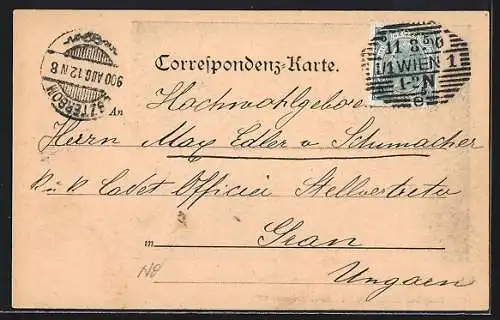 Correspondenz-Karte.
11 8. 00
1/1 WIEN 1
1-2N
ESZTERGOM
900 AUG. 12 N 8
An
Hochwohlgeboren
Herrn Max Edler v Schumacher
K u K Cadet Officier Stellvertreter
in Gran
Ungarn